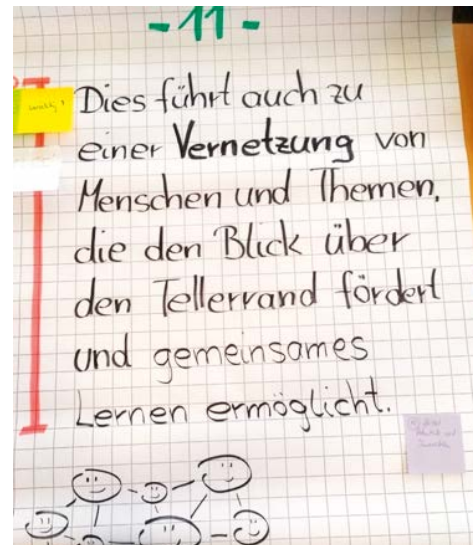 - 11 -
Dies führt auch zu
einer Vernetzung von
Menschen und Themen,
die den Blick über
den Tellerrand fördert
und gemeinsames
Lernen ermöglicht.